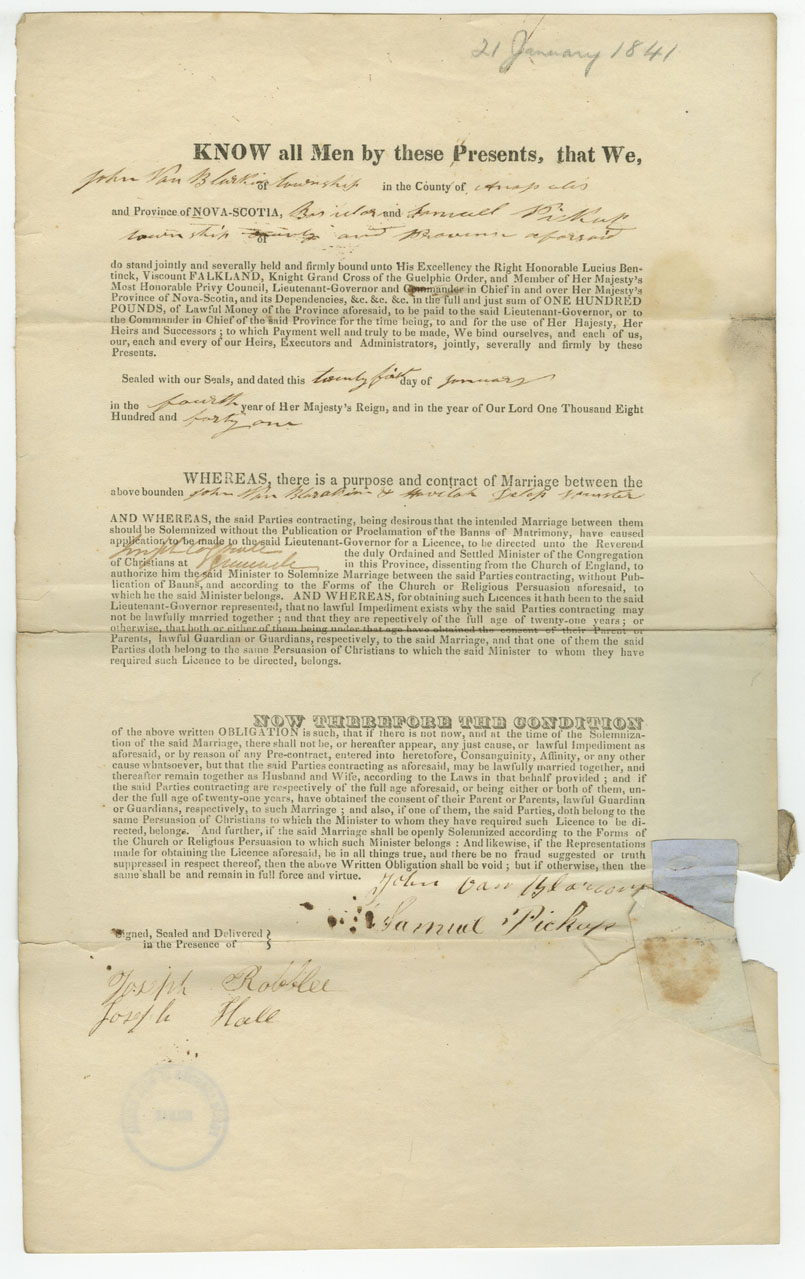 21 January 1841
KNOW all Men by these Presents, that We,
John Van Blarkin of township in the County of Anapolis
and Province of NOVA-SCOTIA, and Samuel Pickup
township of and Province aforsaid
do stand jointly and severally held and firmly bound unto His Excellency the Right Honorable Lucius Ben-
tinck, Viscount FALKLAND, Knight Grand Cross of the Guelphic Order, and Member of Her Majesty's
Most Honorable Privy Council, Lieutenant-Governor and Commander in Chief in and over Her Majesty's
Province of Nova-Scotia, and its Dependencies, &c. &c. &c. in the full and just sum of ONE HUNDRED
POUNDS, of Lawful Money of the Province aforesaid, to be paid to the said Lieutenant-Governor, or to
the Commander in Chief of the said Province for the time being, to and for the use of Her Hajesty, Her
Heirs and Successors ; to which Payment well and truly to be made, We bind ourselves, and each of us,
our, each and every of our Heirs, Executors and Administrators, jointly, severally and firmly by these
Presents.
Sealed with our Seals, and dated this twenty first day of January
in the fourth year of Her Majesty's Reign, and in the year of Our Lord One Thousand Eight
Hundred and forty one
WHEREAS, there is a purpose and contract of Marriage between the
above bounden John Van &
AND WHEREAS, the said Parties contracting, being desirous that the intended Marriage between them
should be Solemnized without the Publication or Proclamation of the Banns of Matrimony, have caused
application to be made to the said Lieutenant-Governor for a Licence, to be directed unto the Reverend
the duly Ordained and Settled Minister of the Congregation
of Christians at in this Province, dissenting from the Church of England, to
authorize him the said Minister to Solemnize Marriage between the said Parties contracting, without Pub-
lication of Banns, and according to the Forms of the Church or Religious Persuasion aforesaid, to
which he the said Minister belongs. AND WHEREAS, for obtaining such Licences it hath been to the said
Lieutenant-Governor represented, that no lawful Impediment exists why the said Parties contracting may
not be lawfully married together ; and that they are repectively of the full age of twenty-one years ; or
otherwise, that both or either of them being under that age have obtained the consent of their Parent or
Parents, lawful Guardian or Guardians, respectively, to the said Marriage, and that one of them the said
Parties doth belong to the same Persuasion of Christians to which the said Minister to whom they have
required such Licence to be directed, belongs.
NOW THEREFORE THE CONDITION
of the above written OBLIGATION is such, that if there is not now, and at the time of the Solemniza-
tion of the said Marriage, there shall not be, or hereafter appear, any just cause, or lawful Impediment as
aforesaid, or by reason of any Pre-contract, entered into heretofore, Consanguinity, Affinity, or any other
cause whatsoever, but that the said Parties contracting as aforesaid, may be lawfully married together, and
thereafter remain together as Husband and Wife, according to the Laws in that behalf provided ; and if
the said Parties contracting are respectively of the full age aforesaid, or being either or both of them, un-
der the full age of twenty-one years, have obtained the consent of their Parent or Parents, lawful Guardian
or Guardians, respectively, to such Marriage ; and also, if one of them, the said Parties, doth belong to the
same Persuasion of Christians to which the Minister to whom they have required such Licence to be di-
rected, belongs. And further, if the said Marriage shall be openly Solemnized according to the Forms of
the Church or Religious Persuasion to which such Minister belongs : And likewise, if the Representations
made for obtaining the Licence aforesaid, be in all things true, and there be no fraud suggested or truth
suppressed in respect thereof, then the above Written Obligation shall be void ; but if otherwise, then the
same shall be and remain in full force and virtue.
John Van Blarcom
Samuel Pickup
Signed, Sealed and Delivered
in the Presence of
Joseph Robblee
Joseph Hall